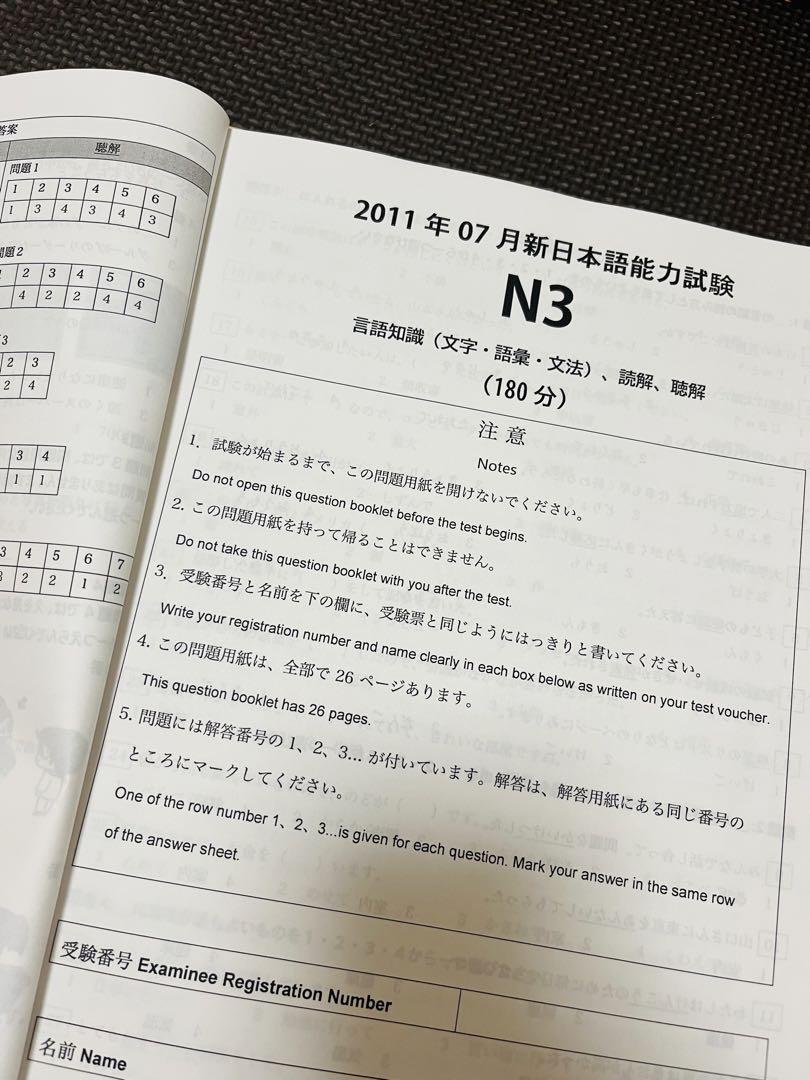 答案
聴解
問題1
1 2 3 4 5 6
1 3 4 3 4 3
問題2
2 3 4 5 6
4 2 2 4 4
3
2 3
2 4
3 4
1 1
3 4 5 6 7
2 2 1 2
2011年07月新日本語能力試験
N3
言語知識（文字・語彙・文法）、読解、聴解
（180分）
注意
Notes
1. 試験が始まるまで、この問題用紙を開けないでください。
Do not open this question booklet before the test begins.
2. この問題用紙を持って帰ることはできません。
Do not take this question booklet with you after the test.
3. 受験番号と名前を下の欄に、受験票と同じようにはっきりと書いてください。
Write your registration number and name clearly in each box below as written on your test voucher.
4. この問題用紙は、全部で26ページあります。
This question booklet has 26 pages.
5. 問題には解答番号の1、2、3…が付いています。解答は、解答用紙にある同じ番号の
ところにマークしてください。
One of the row number 1、2、3…is given for each question. Mark your answer in the same row
of the answer sheet.
受験番号 Examinee Registration Number
名前 Name